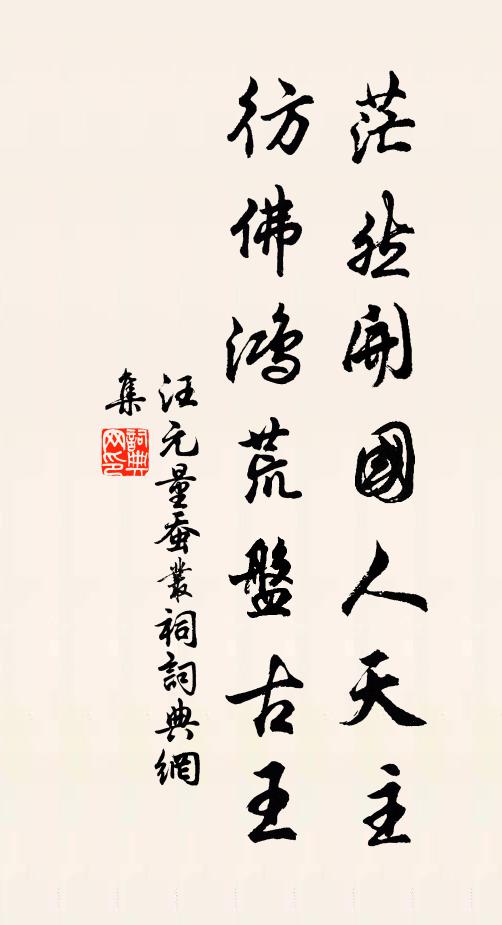 茫然開國人天主
彷佛鴻荒盤古王
汪元量蚕叢祠詞典網
集
詞典网印